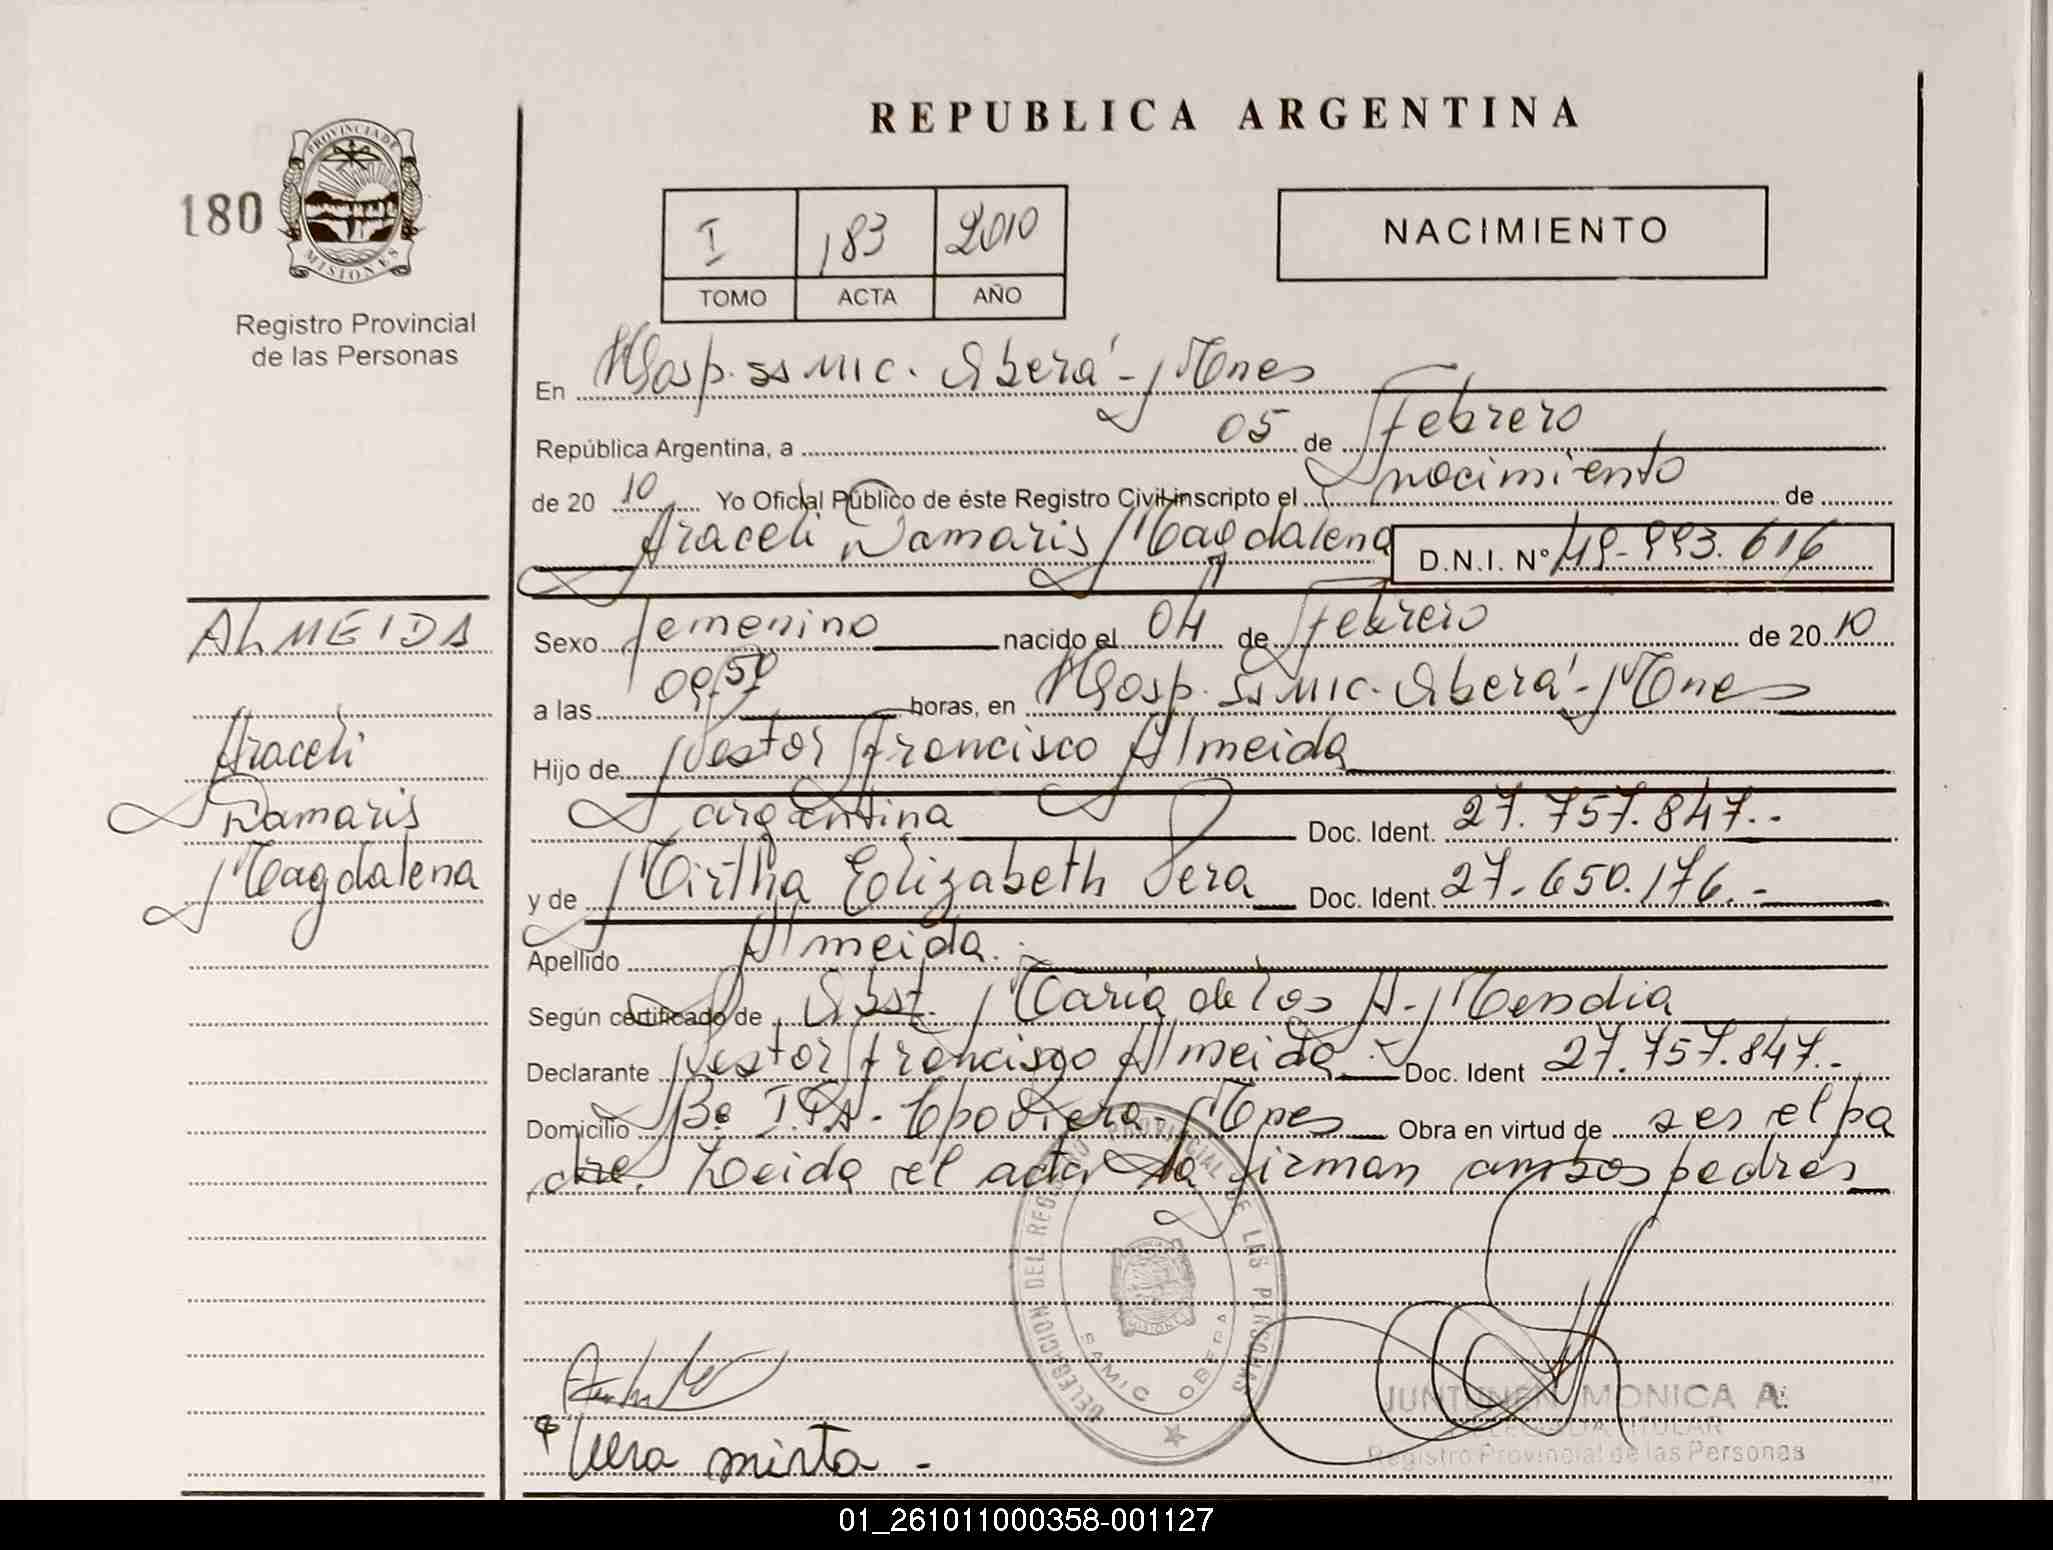 REPUBLICA ARGENTINA
180
PROVINCIA DE
MISIONES
Registro Provincial
de las Personas
I 183 2010
TOMO ACTA AÑO
NACIMIENTO
En Hosp. SAMIC. Oberá - Mnes
República Argentina, a 05 de Febrero
de 20 10 Yo Oficial Público de éste Registro Civil inscripto el nacimiento de
Araceli Damaris Magdalena D.N.I. Nº 49.993.616
ALMEIDA
Araceli
Damaris
Magdalena
Sexo femenino nacido el 04 de Febrero de 20 10
a las 09,50 horas, en Hosp. SAMIC. Oberá - Mnes
Hijo de Nestor Francisco Almeida
argentina Doc. Ident. 27.757.847.-
y de Mirtha Elizabeth Vera Doc. Ident. 27.650.176.-
Apellido Almeida.
Según certificado de Obst. María de los A. Mendia
Declarante Nestor Francisco Almeida Doc. Ident 27.757.847.-
Domicilio Bº Mnes Obra en virtud de ser el pa
dre. Leida el acta la firman ambos padres
DELEGACION DEL REGISTRO PROVINCIAL DE LAS PERSONAS
SAMIC OBERA
JUNTUNEN MONICA A.
DELEGADA TITULAR
Registro Provincial de las Personas
Vera mirta -
01_261011000358-001127